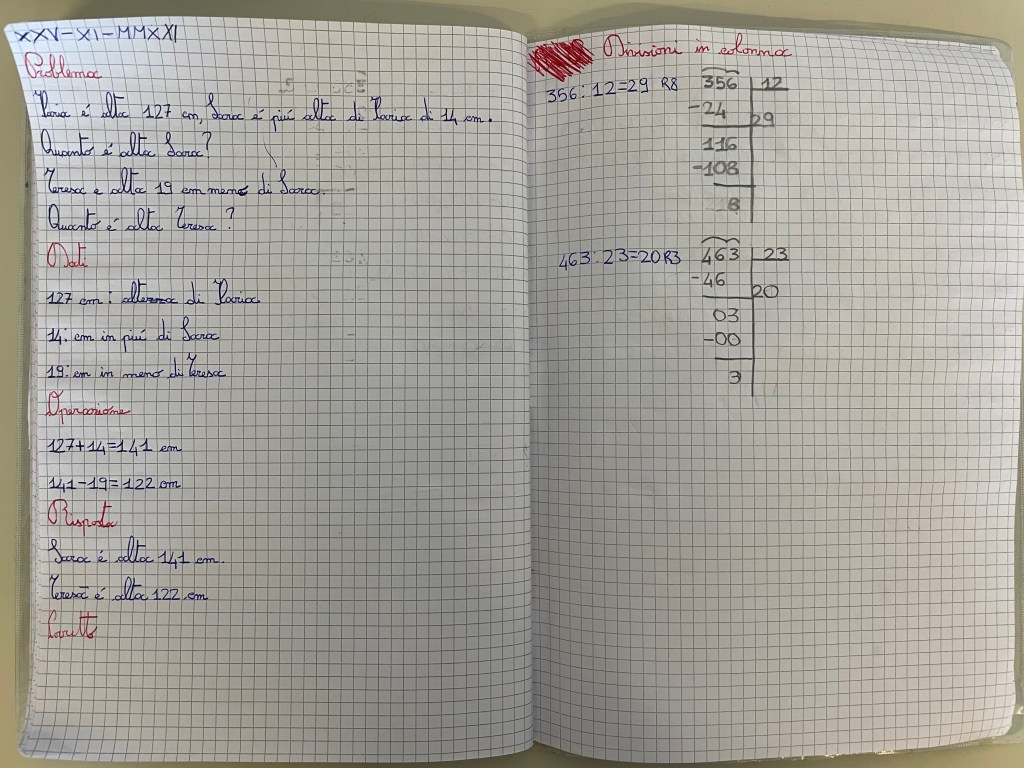 XXV-XI-MMXXI
Problema
Ilaria é alta 127 cm, Sara é piú alta di Ilaria di 14 cm.
Quanto é alta Sara?
Teresa e alta 19 cm meno di Sara.
Quanto é alta Teresa?
Dati
127 cm: altezza di Ilaria
14: cm in piú di Sara
19: cm in meno di Teresa
Operazione
127+14=141 cm
141-19=122 cm
Risposta
Sara é alta 141 cm.
Teresa é alta 122 cm
Divisioni in colonna
356:12=29 R8
356 12
-24 29
116
-108
8
463:23=20R3
463 23
-46 20
03
-00
3